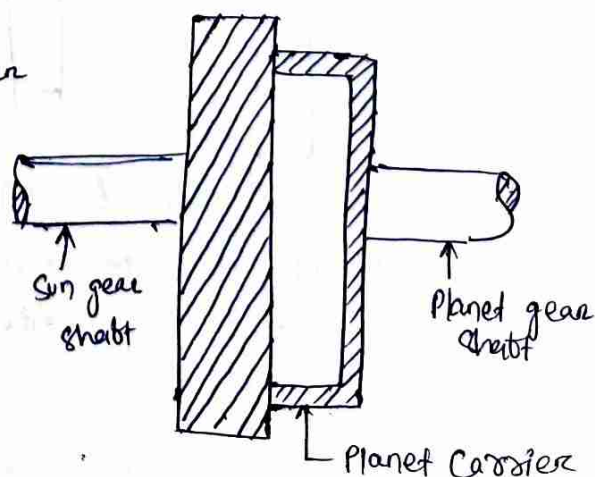 Sun gear
shaft
Planet gear
shaft
Planet Carrier